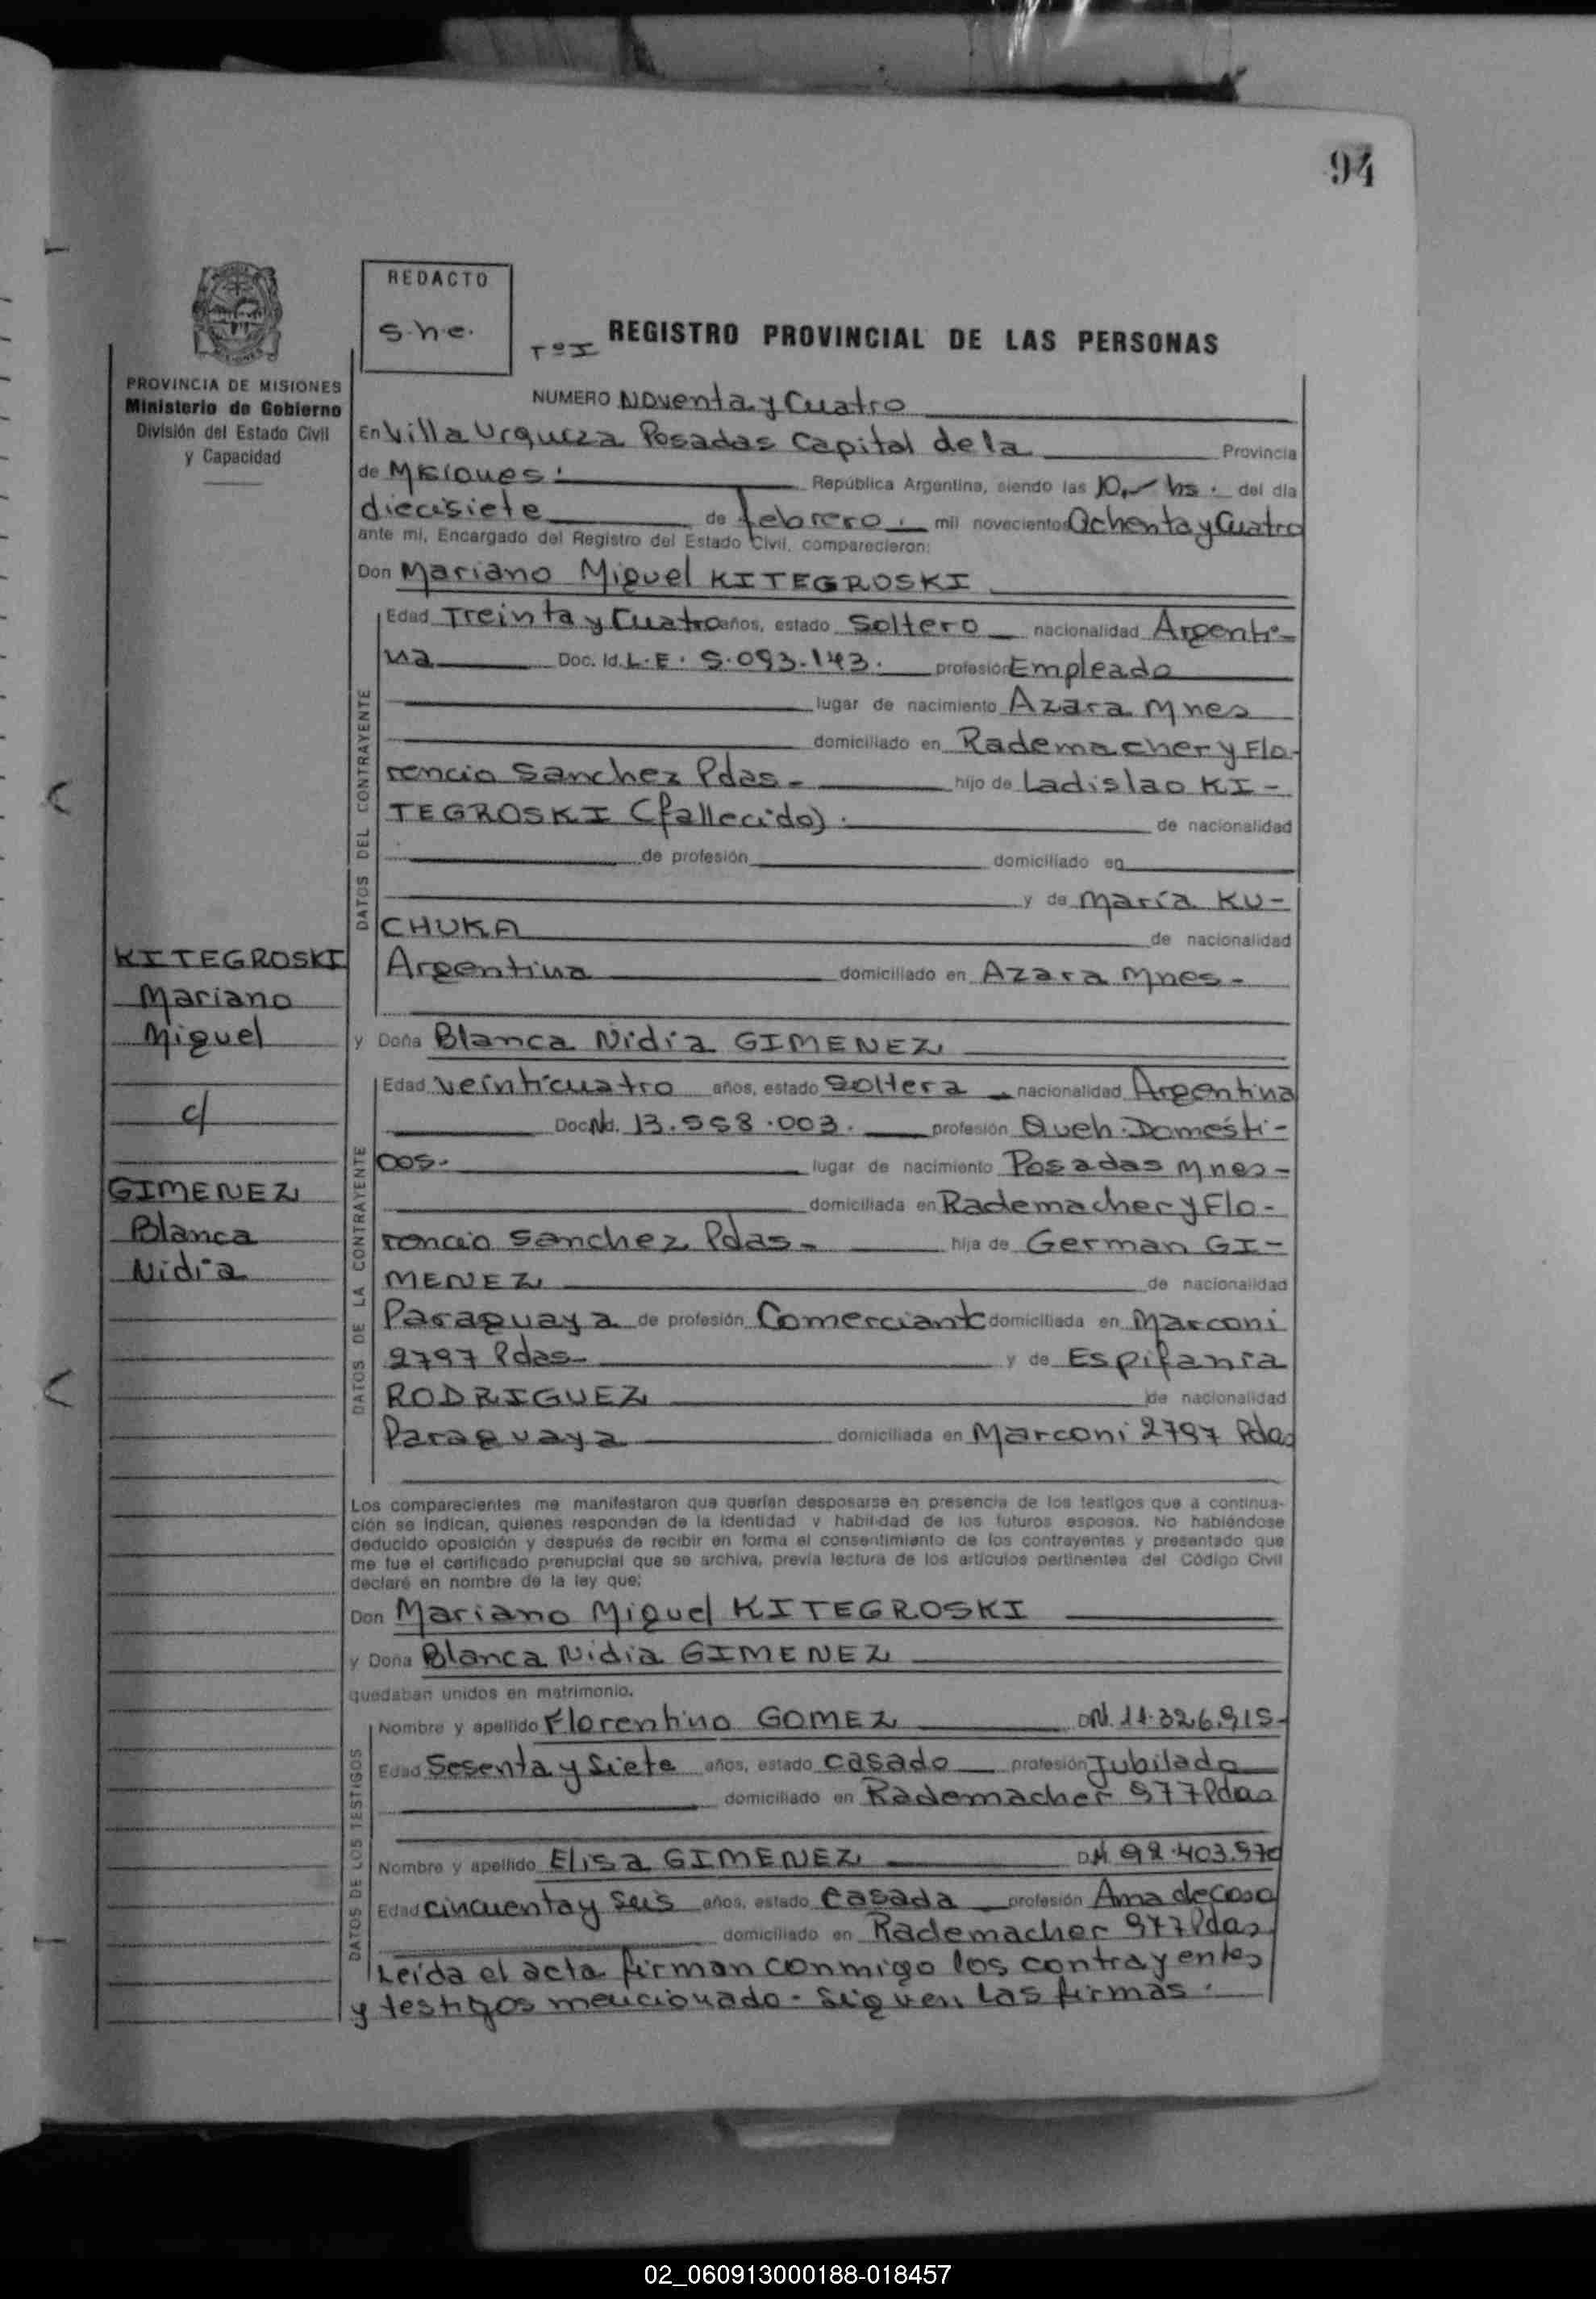 94
REDACTO
s.h.e.
Tº I
REGISTRO PROVINCIAL DE LAS PERSONAS
PROVINCIA DE MISIONES
Ministerio de Gobierno
División del Estado Civil
y Capacidad
NUMERO Noventa y Cuatro
En Villa Urquiza Posadas Capital de la Provincia
de Misiones. República Argentina, siendo las 10,- hs. del día
diecisiete de febrero. mil novecientos Ochenta y Cuatro
ante mí, Encargado del Registro del Estado Civil, comparecieron:
Don Mariano Miguel KITEGROSKI
DATOS DEL CONTRAYENTE
Edad Treinta y Cuatro años, estado Soltero nacionalidad Argenti-
na Doc. Id. L.E. 5.093.143. profesión Empleado
lugar de nacimiento Azara Mnes
domiciliado en Rademacher y Flo-
rencio Sanchez Pdas- hijo de Ladislao KI-
TEGROSKI (fallecido). de nacionalidad
de profesión domiciliado en
y de María KU-
CHUKA de nacionalidad
Argentina domiciliado en Azara Mnes-
KITEGROSKI
Mariano
Miguel
c/
GIMENEZ
Blanca
Nidia
y Doña Blanca Nidia GIMENEZ
DATOS DE LA CONTRAYENTE
Edad veinticuatro años, estado Soltera nacionalidad Argentina
Doc. Nd. 13.558.003. profesión Queh. Domésti-
cos. lugar de nacimiento Posadas Mnes-
domiciliada en Rademacher y Flo-
rencio Sanchez Pdas- hija de German GI-
MENEZ de nacionalidad
Paraguaya de profesión Comerciante domiciliada en Marconi
2797 Pdas- y de Espifania
RODRIGUEZ de nacionalidad
Paraguaya domiciliada en Marconi 2797 Pdas
Los comparecientes me manifestaron que querían desposarse en presencia de los testigos que a continua-
ción se indican, quienes responden de la identidad y habilidad de los futuros esposos. No habiéndose
deducido oposición y después de recibir en forma el consentimiento de los contrayentes y presentado que
me fue el certificado prenupcial que se archiva, previa lectura de los artículos pertinentes del Código Civil
declaré en nombre de la ley que:
Don Mariano Miguel KITEGROSKI
y Doña Blanca Nidia GIMENEZ
quedaban unidos en matrimonio.
DATOS DE LOS TESTIGOS
Nombre y apellido Florentino GOMEZ DNI. 11.326.915-
Edad Sesenta y Siete años, estado casado profesión Jubilado
domiciliado en Rademacher 977 Pdas
Nombre y apellido Elisa GIMENEZ DNI 92.403.570
Edad cincuenta y seis años, estado Casada profesión Ama de casa
domiciliado en Rademacher 977 Pdas
Leída el acta firman conmigo los contrayentes
y testigos mencionado- siguen las firmas.
02_060913000188-018457